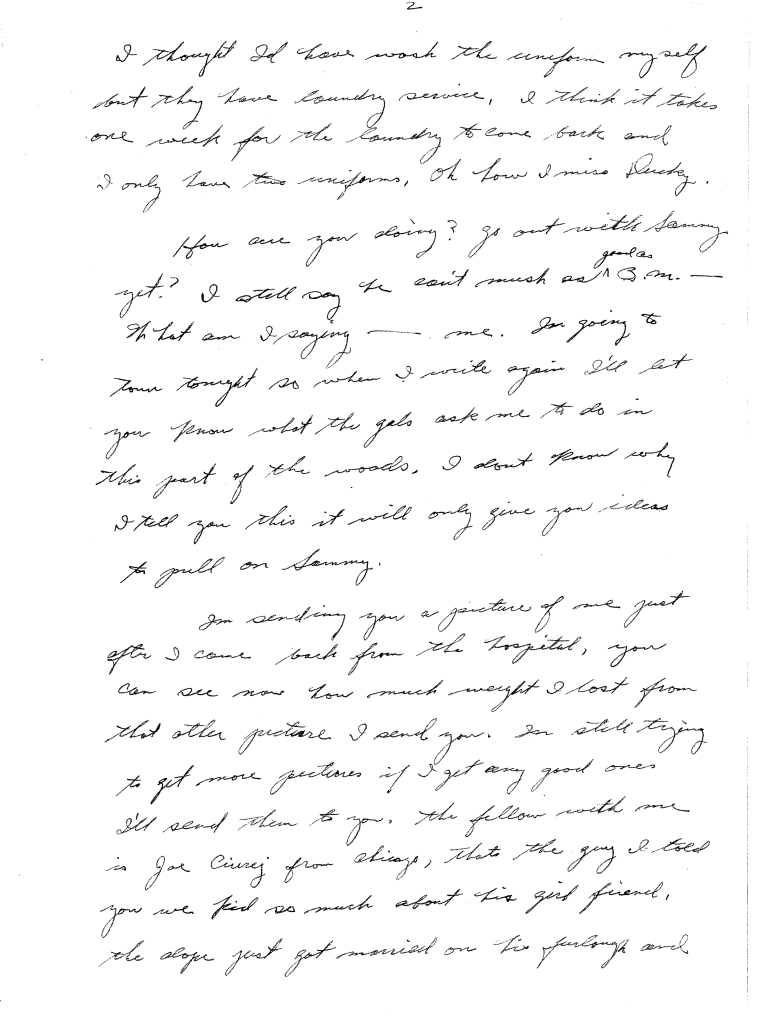 2
I thought Id have wash the uniform myself
but they have laundry service, I think it takes
one week for the laundry to come back and
I only have two uniforms, Oh how I miss Ducky.
How are you doing? go out with Sammy
yet? I still say he ain't much as ^ good as B.M. —
What am I saying — me. Im going to
town tonight so when I write again I'll let
you know what the gals ask me to do in
this part of the woods. I dont know why
I tell you this it will only give you ideas
to pull on Sammy.
Im sending you a picture of me just
after I came back from the hospital, you
can see now how much weight I lost from
that other picture I send you. Im still trying
to get more pictures if I get any good ones
I'll send them to you. the fellow with me
is Joe from chicago, thats the guy I told
you we kid so much about his girl friend,
the dope just got married on his furlough and